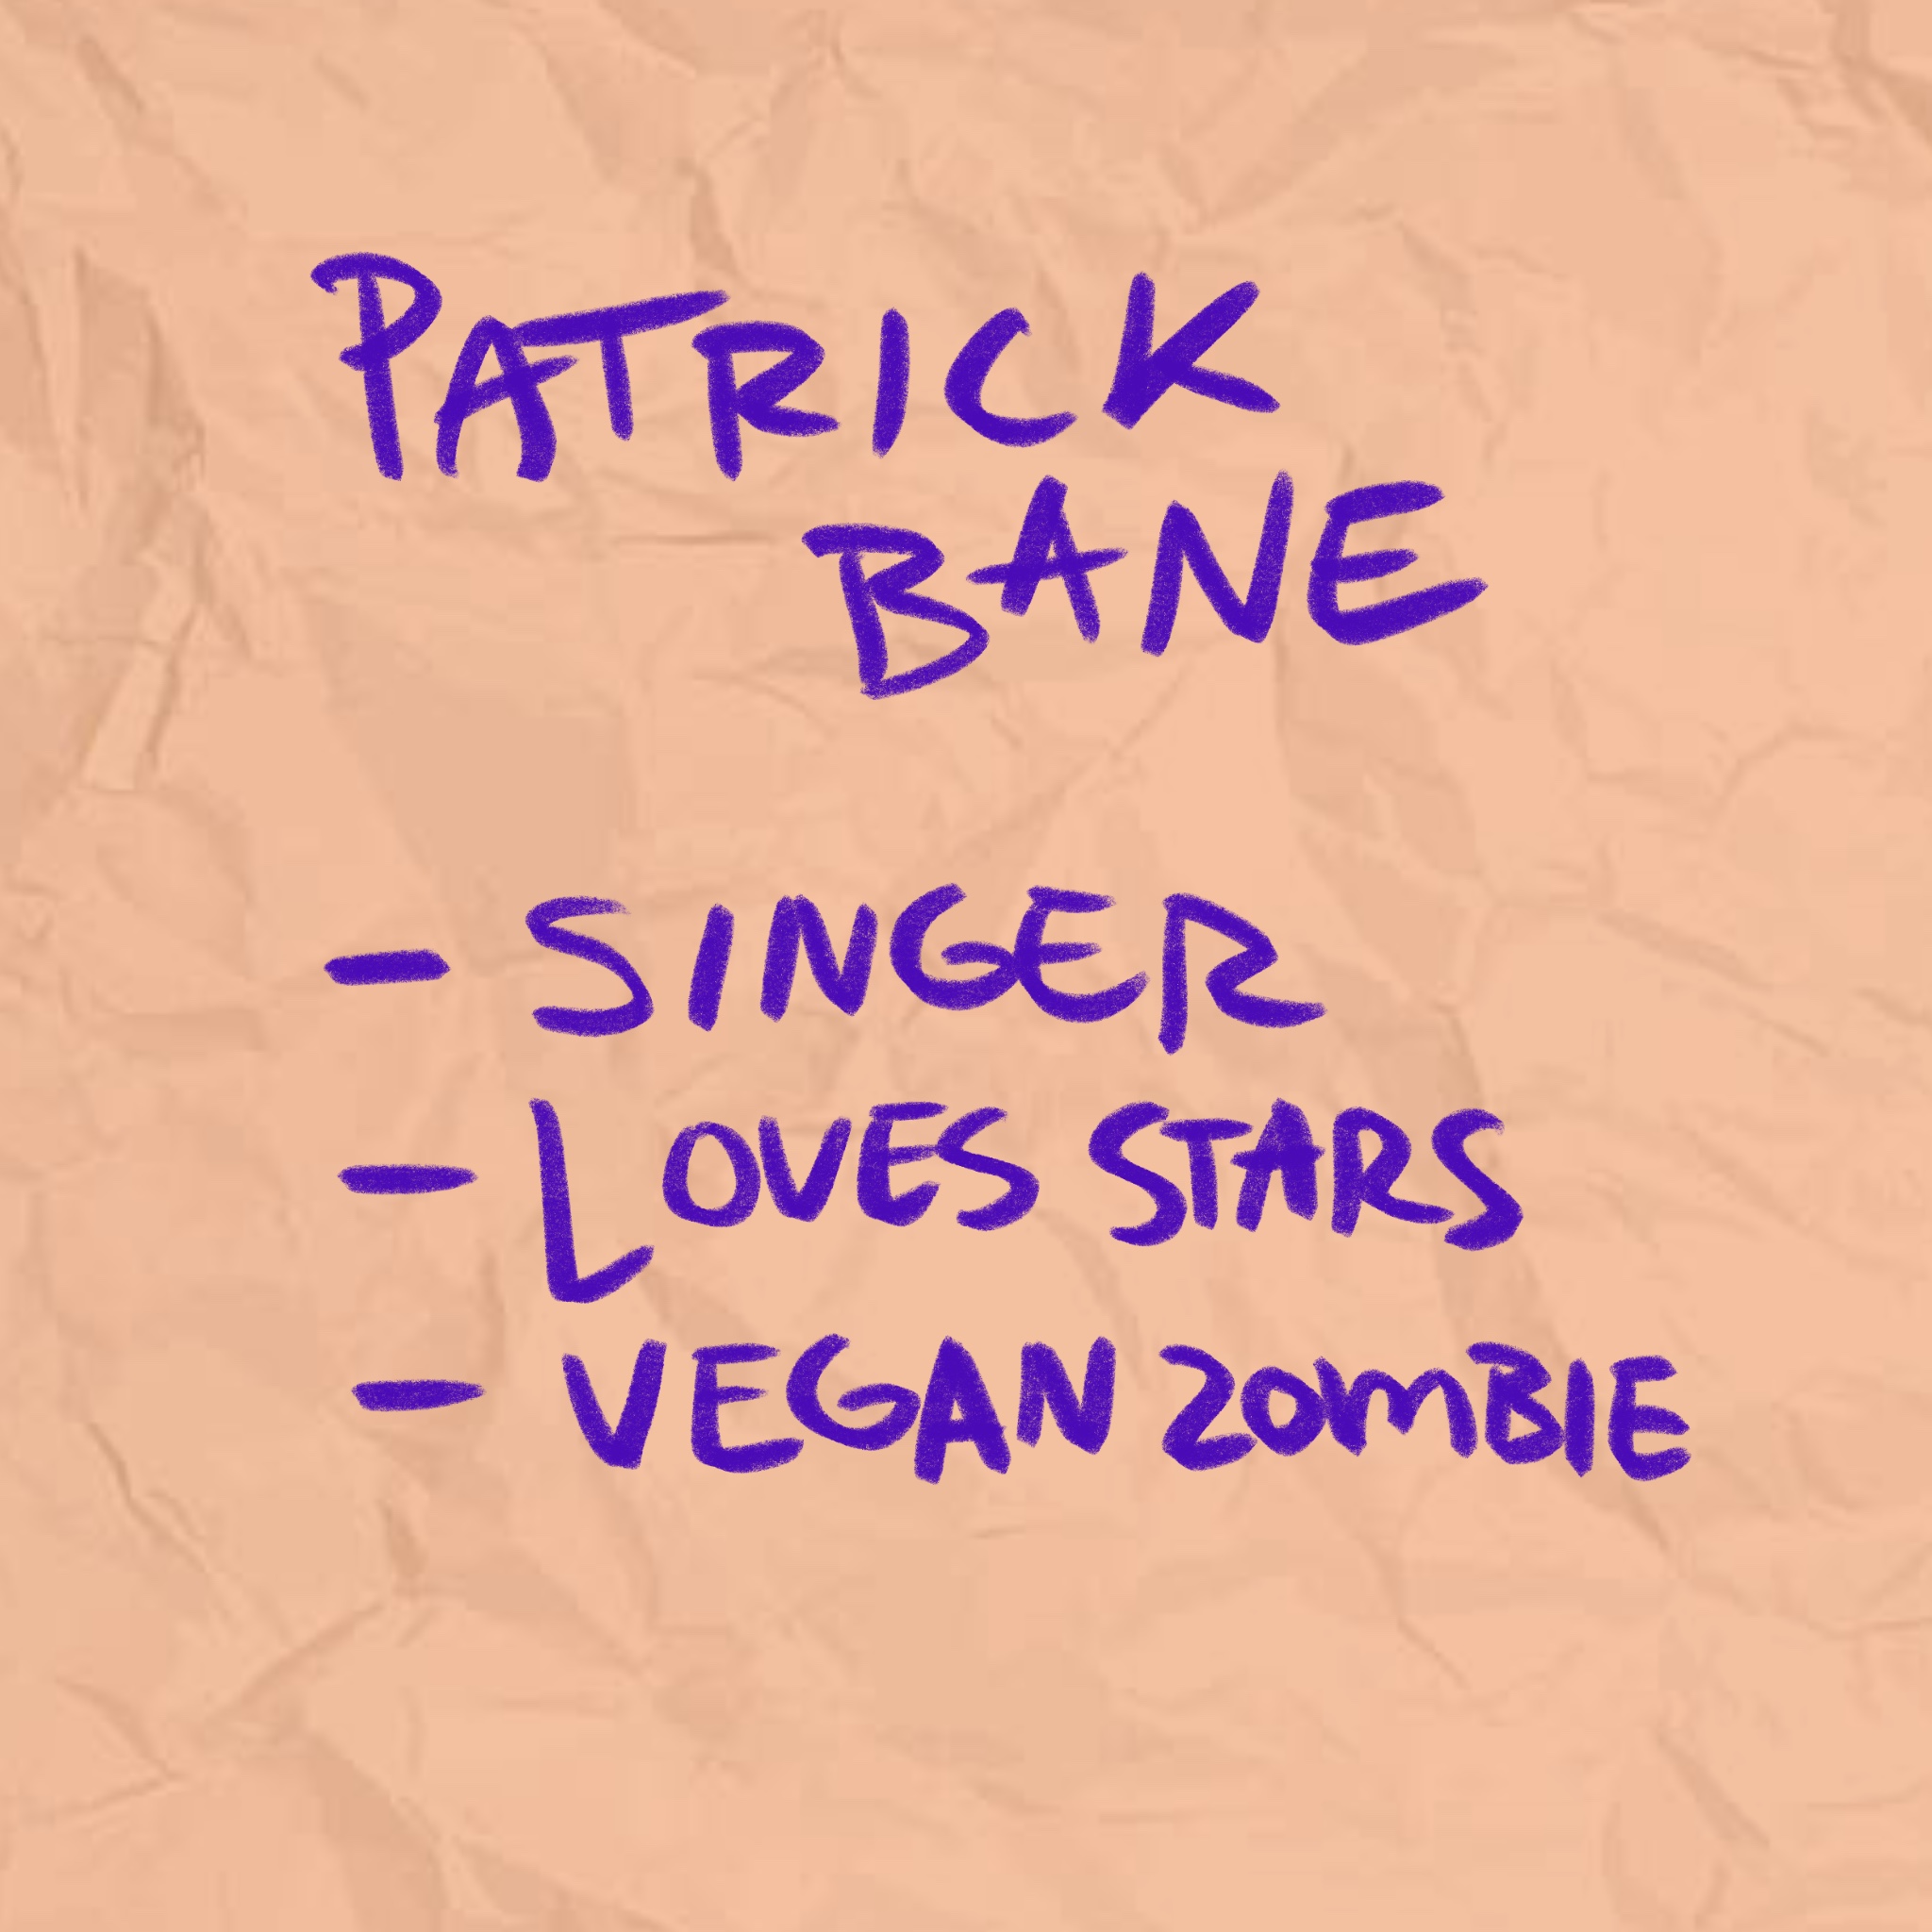 PATRICK
BANE
- SINGER
- LOVES STARS
- VEGAN ZOMBIE